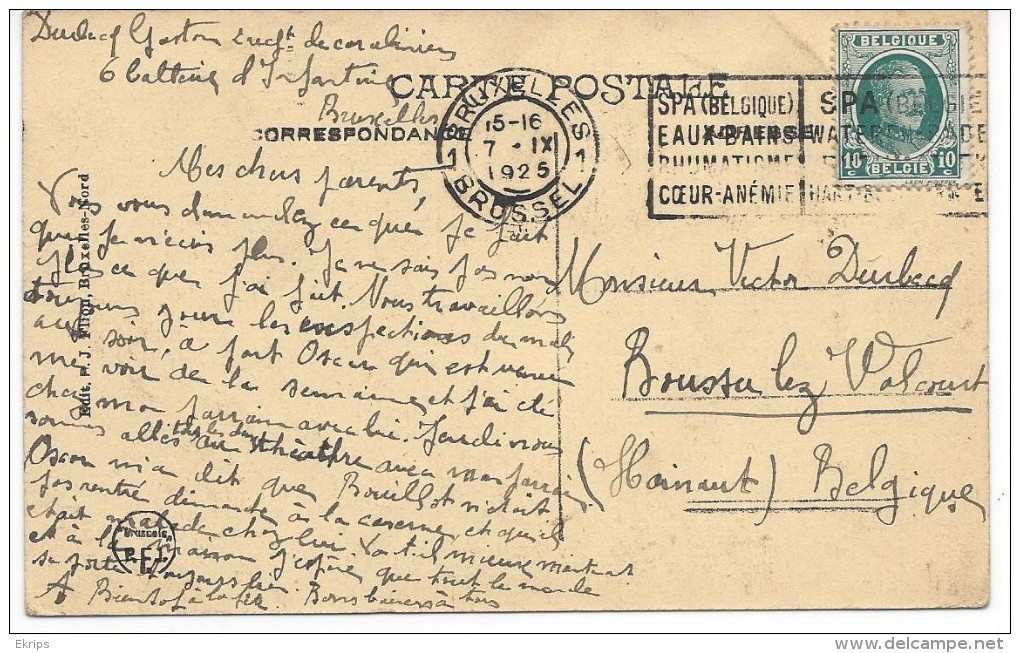 Durbecq Gaston 2 regt de carabiniers
6 d'Infanterie
Bruxelles
CARTE POSTALE
CORRESPONDANCE
ADRESSE
BRUXELLES
1 15-16 1
7 - IX
1925
BRUSSEL
SPA (BELGIQUE)
EAUX-BAINS
RHUMATISME
CŒUR-ANÉMIE
SPA (BELGIE
WATER
HART-B
BELGIQUE
10c 10c
BELGIË
Mes chers parents,
Vous vous demandez ce que je fait
que je n'écris plus. Je ne sais pas non
plus ce que j'ai fait. Nous travaillons
toujours pour les inspections du matin
au soir, à part Oscar qui est venu
me voir de la semaine et j'ai été
chez mon parrain avec lui. Jeudi nous
sommes allés au théâtre avec mon parrain
Oscar m'a dit que Bouillot n'était
pas rentré dimanche à la caserne et qu'il
était malade chez lui. Va-t-il mieux maintenant
et à la maison j'espère que tout le monde
se porte toujours bien.
A Bientôt Bons baisers à tous
Monsieur Victor Durbecq
Boussu lez Walcourt
(Hainaut) Belgique
Edit. P. J. Flion, Bruxelles-Nord
Ekrips
www.delcampe.net